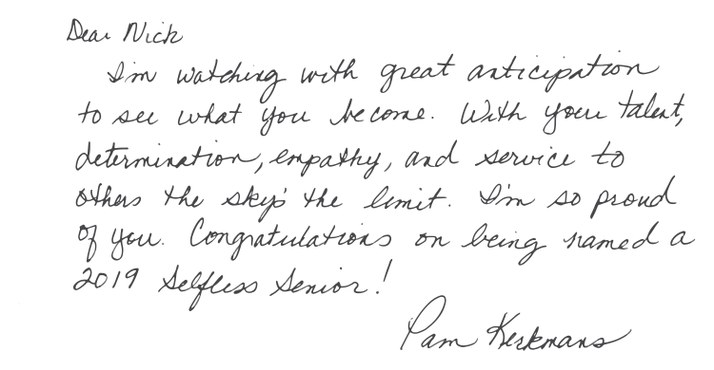 Dear Nick
I'm watching with great anticipation
to see what you become. With your talent,
determination, empathy, and service to
others the sky's the limit. I'm so proud
of you. Congratulations on being named a
2019 Selfless Senior!
Pam Kerkmans